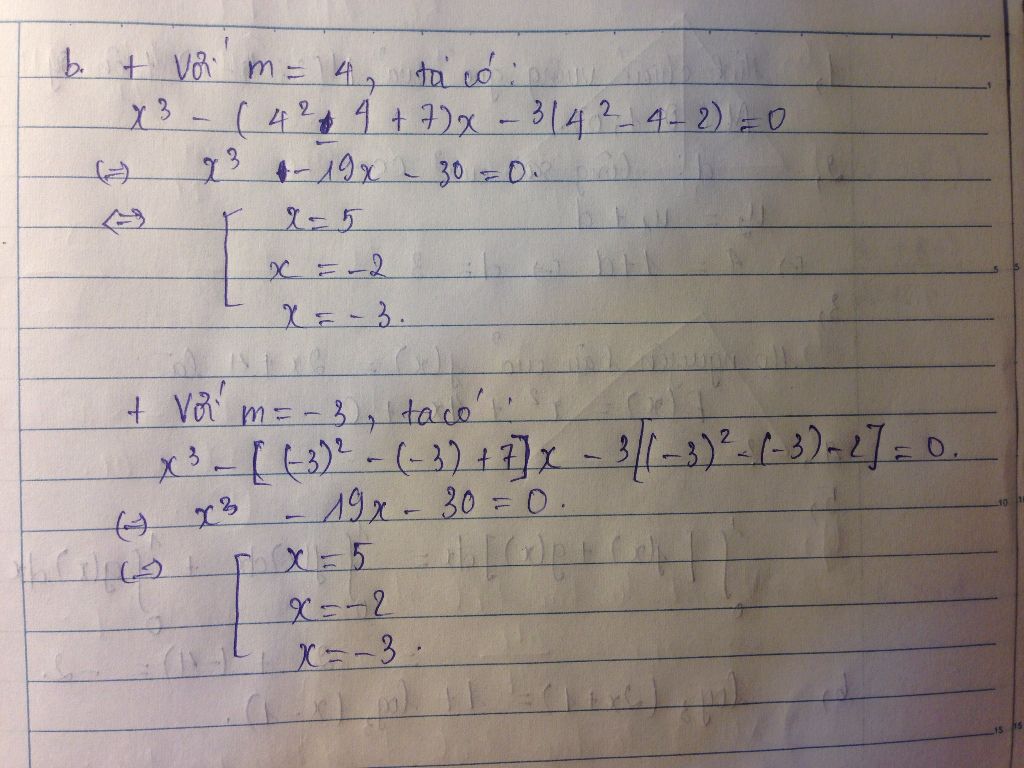 b. + Với m = 4, ta có:
x³ - (4² - 4 + 7)x - 3(4² - 4 - 2) = 0
(=) x³ - 19x - 30 = 0.
<=> [ x = 5
x = -2
x = -3.
+ Với m = -3, ta có:
x³ - [(-3)² - (-3) + 7]x - 3[(-3)² - (-3) - 2] = 0.
(=) x³ - 19x - 30 = 0.
(=) [ x = 5
x = -2
x = -3.